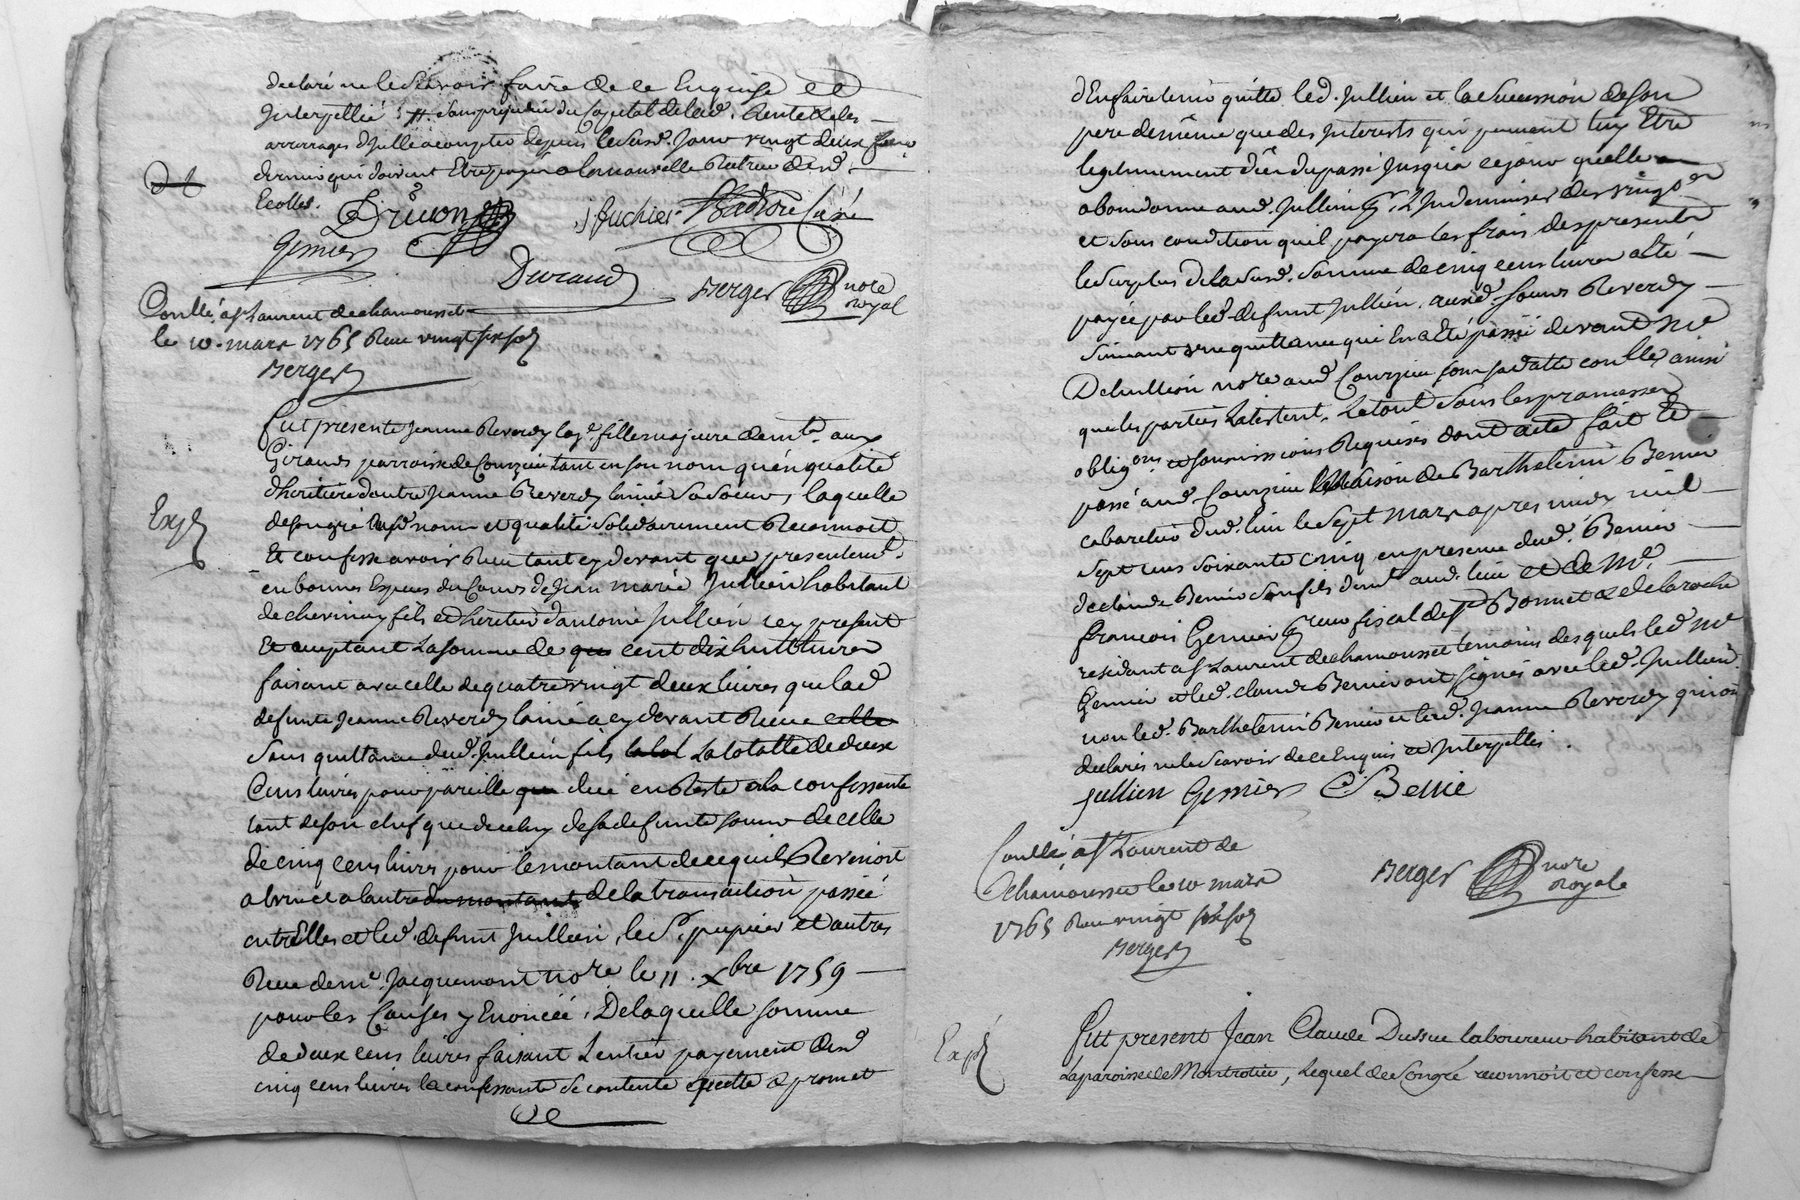 declaré ne le scavoir faire de ce Enquise et
Interpellé sans prejudice du Capital de lad. Rente & des
arrerages d'icelle a compter depuis le susd. jour vingt deux
dernier qui doivent Etre payés a la nouvelle Rectrice desd.
Ecolles.
Drivon
j fuchier
Curé
Gernier
Durand
Berger nore royal
Conllé, a St Laurent de chamousset
le 10. mars 1765 Reçu vingt six sols
Berger
Fut presente Jeanne Reverdy lad. fille majeure demt. aux
Girauds parroisse de Courzieu tant en son nom qu'en qualité
d'heritiere d'autre Jeanne Reverdy l'ainée sa soeur, laquelle
Expé
de son gré nom et qualité solidairement Reconnoit
Et confesse avoir Reçu tant cy devant que presentemt.
en bonnes Especes du Cours de Jean marie Jullien habitant
de chevinay fils et heritier d'antoine Jullien icy present
Et acceptant La somme de cent dix huit livres
faisant avec celle de quatre vingt deux livres que lad
defunte Jeanne Reverdy l'ainée a cy devant Reçue
sans quittance dud. Jullien fils La totalle de deux
Cens livres pour pareille due en Reste a la confessante
tant de son chef que de celuy de sa defunte soeur de celle
de cinq cens livres pour le montant de ce qui Revenoit
a l'une et a l'autre du montant de la transaction passée
entr'Elles et led. defunt Jullien, le Sr. papier et autres
Reçue de me. Jacquemont nore. le 11. Xbre 1759
pour les Causes y Enoncée, De laquelle somme
de deux cens livres faisant L'entier payement desd
cinq cens livres la confessante se contente quitte & promet
d'En faire tenir quitte led. Jullien et la succession de son
pere de même que des Interests qui peuvent luy Etre
legitimement dûs du passé jusqu'a ce jour qu'elle
abandonne aud. Jullien pr. L'Indemniser des vingt
et sous condition qu'il payera les frais des presentes
le surplus de la susd. somme de cinq cens livres a été
payée par led. defunt Jullien, auxd. soeurs Reverdy
suivant une quittance qui En a été passée devant Me
Dehullion nore aud Courzieu sous sa datte conllé ainsi
que les parties L'attestent, Le tout sous les promesses
obligons. et soumissions Requises dont acte fait Et
passé aud. Courzieu maison de Barthelemi Benier
cabaretier dud. lieu le sept mars apres midy mil
sept cens soixante cinq en presence dud. Benier
de claude Benier son fils demt. aud. lieu et de Me.
françois Gernier preur fiscal de St Bonnet & de la roche
residant a St Laurent de chamousset temoins desquels led Me
Gernier et led. claude Benier ont signés avec led. Jullien
non led. Barthelemi Benier et lad. Jeanne Reverdy qui ont
declarés ne le scavoir de ce Enquis et Interpellés.
jullien Gernier C Benie
Conllé, a St Laurent de
Chamousset le 10 mars
1765 Reçu vingt six sols
Berger
Berger nore royal
Expé
Fut present Jean Claude Dussuc laboureur habitant de
La paroisse de Montrotier, Lequel de son gré reconnoit et confesse